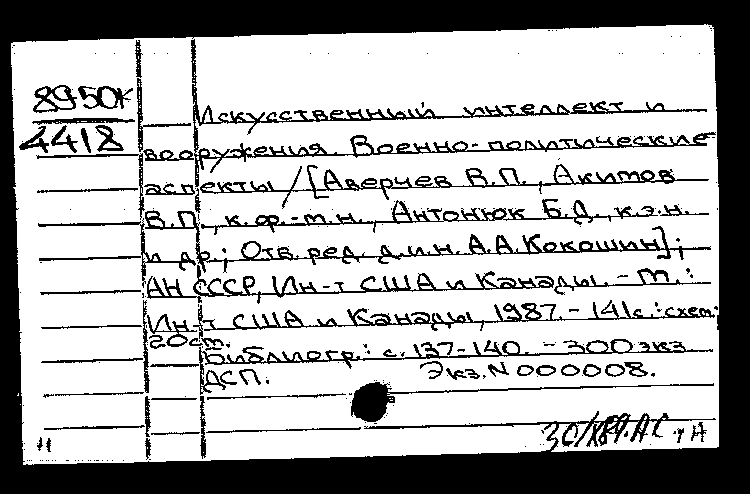 8950к
4418
Искусственный интеллект и
вооружения. Военно-политические
аспекты / [Аверчев В.П., Акимов
В.П., к.ф.-м.н., Антонюк Б.Д., к.э.н.
и др.; Отв. ред. д.и.н. А.А. Кокошин];
АН СССР, Ин-т США и Канады. - М.:
Ин-т США и Канады, 1987. - 141с.: схем;
20см.
Библиогр.: с. 137-140. - 300 экз
ДСП. Экз. N 000008.